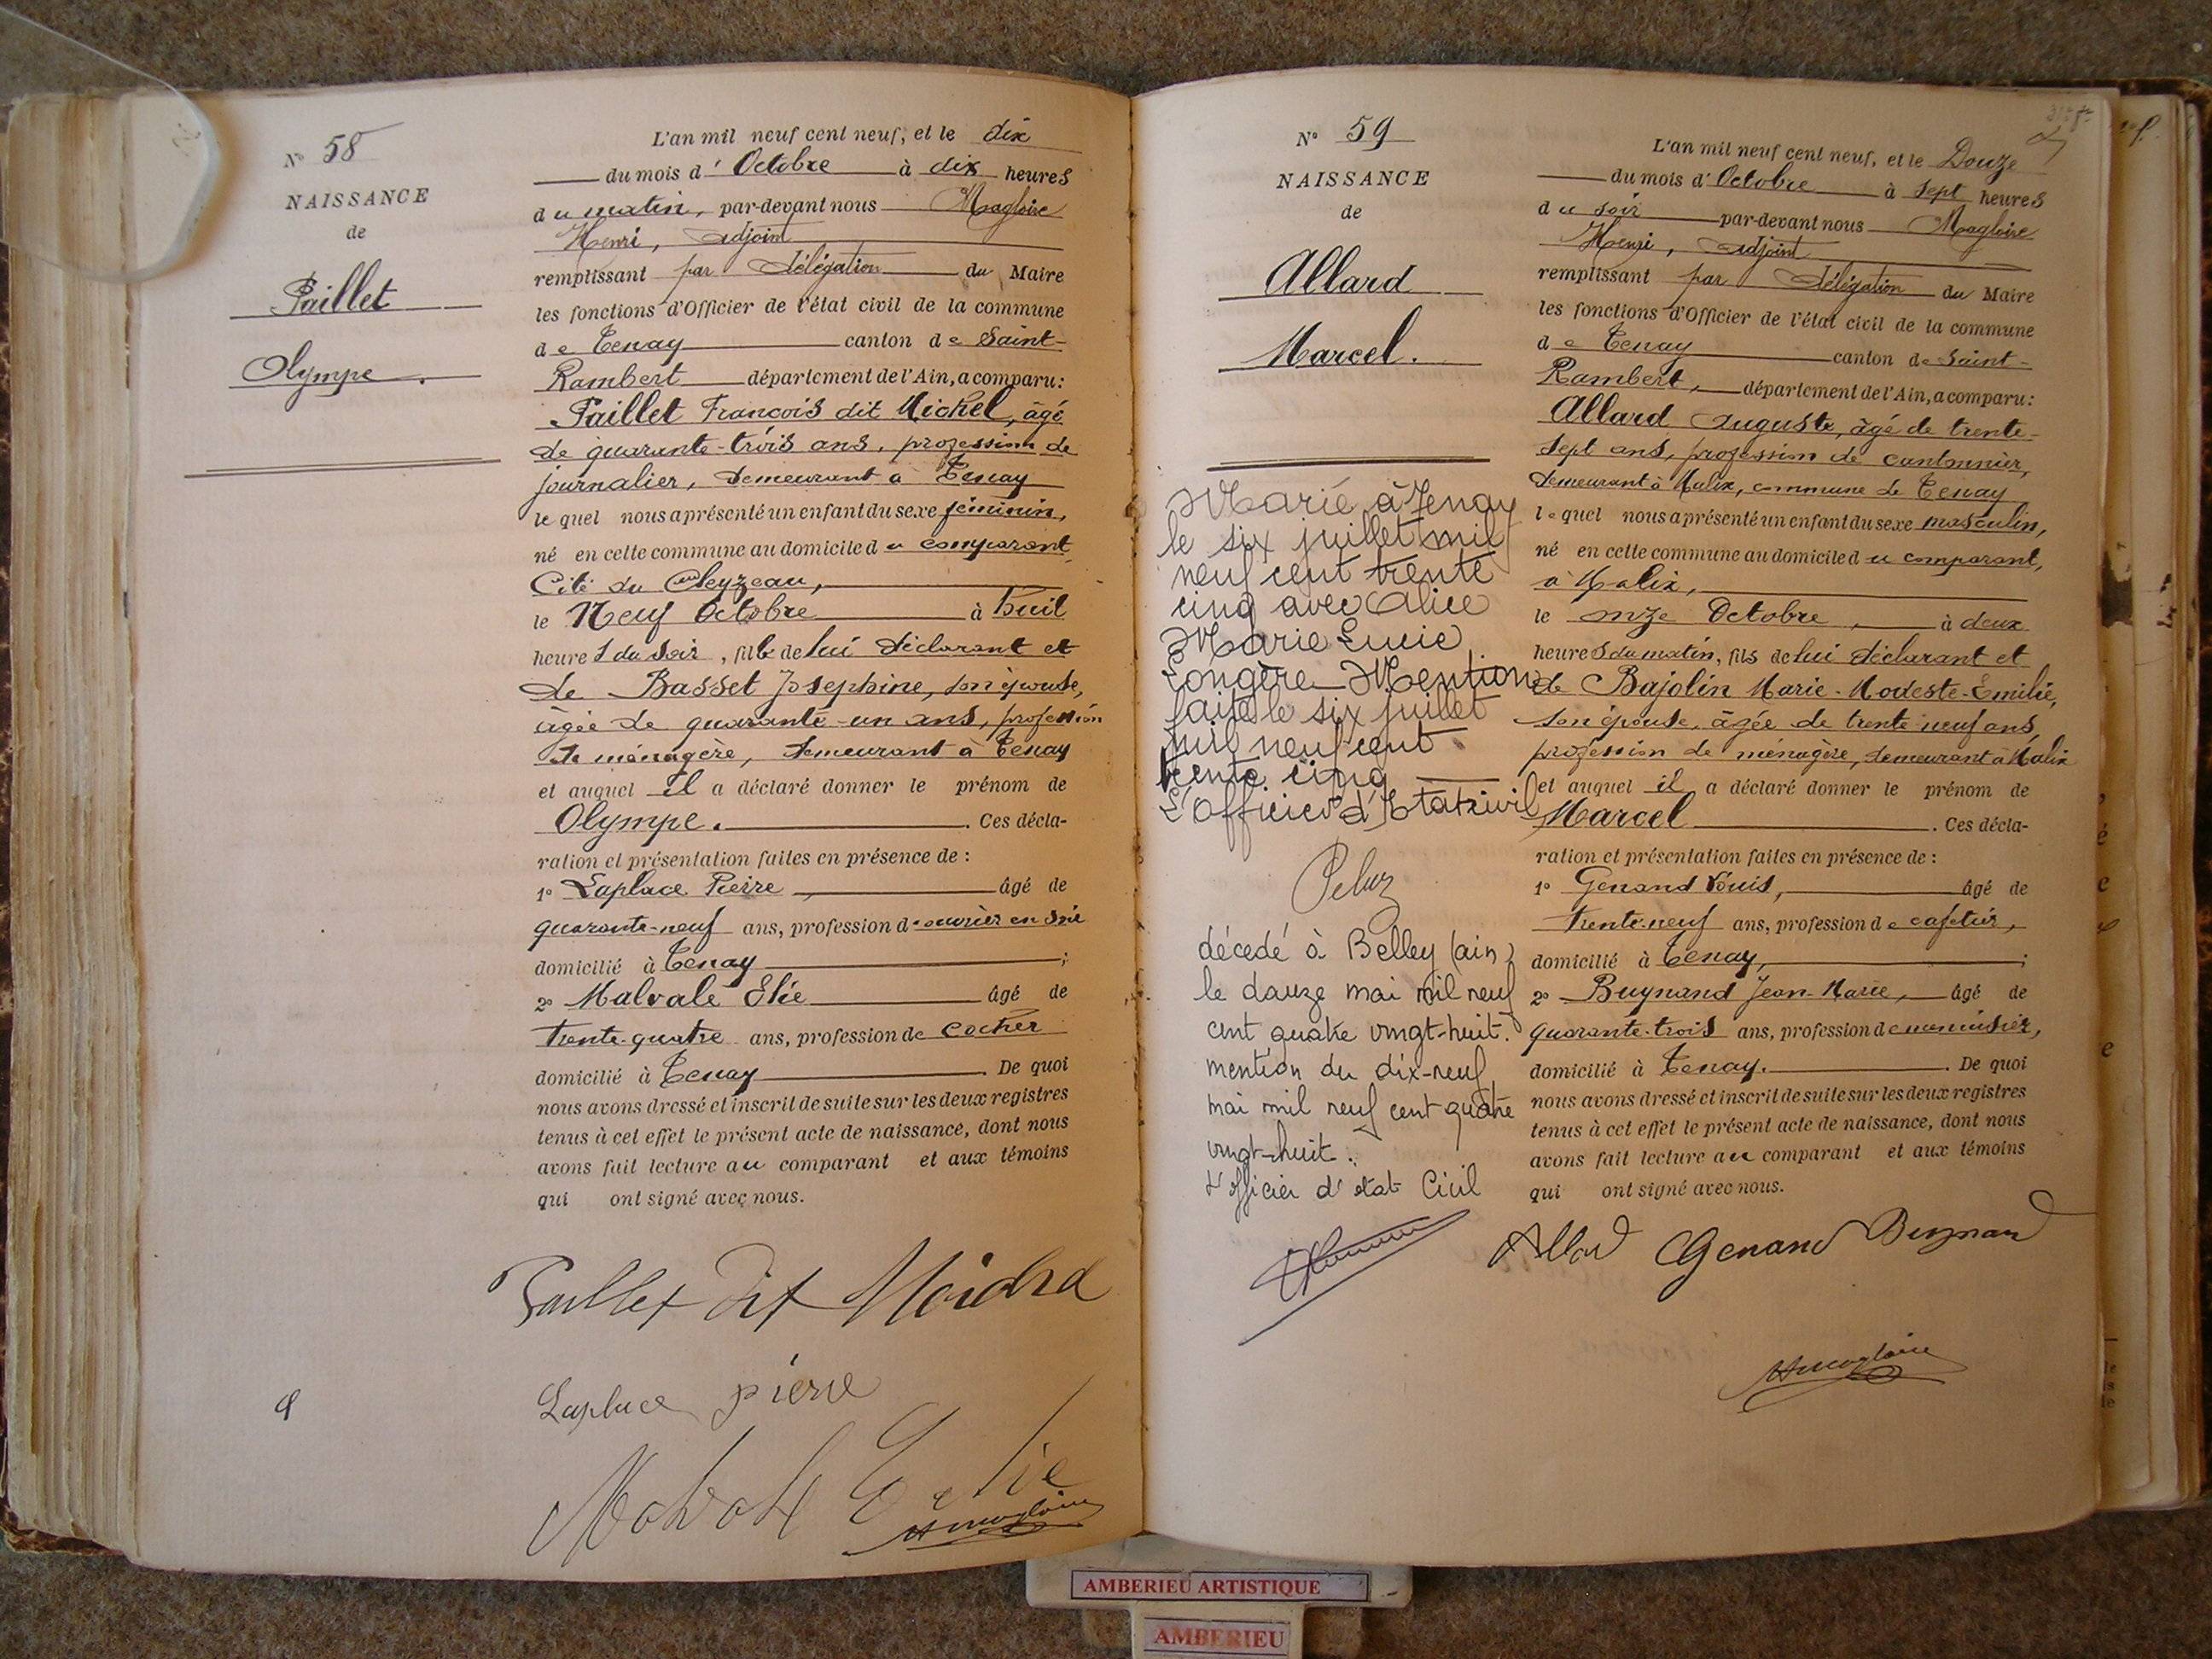 N° 58
NAISSANCE
de
Paillet
Olympe.
L'an mil neuf cent neuf, et le dix
du mois d'Octobre à dix heures
du matin, par-devant nous Magloire
Henri, adjoint
remplissant par délégation du Maire
les fonctions d'Officier de l'état civil de la commune
de Tenay canton de Saint-
Rambert département de l'Ain, a comparu:
Paillet François dit Michel, âgé
de quarante-trois ans, profession de
journalier, demeurant à Tenay
lequel nous a présenté un enfant du sexe féminin,
né en cette commune au domicile du comparant,
Cité du Cleyzeau,
le Neuf Octobre à huit
heures du soir, fille de lui déclarant et
de Basset Joséphine, son épouse,
âgée de quarante-un ans, profession
de ménagère, demeurant à Tenay
et auquel il a déclaré donner le prénom de
Olympe. Ces décla-
ration et présentation faites en présence de :
1° Laplace Pierre, âgé de
quarante-neuf ans, profession d'ouvrier en soie
domicilié à Tenay ;
2° Malvale Elie âgé de
trente-quatre ans, profession de cocher
domicilié à Tenay. De quoi
nous avons dressé et inscrit de suite sur les deux registres
tenus à cet effet le présent acte de naissance, dont nous
avons fait lecture au comparant et aux témoins
qui ont signé avec nous.
Paillet dit
Laplace pierre
Elie
Hmagloire
N° 59
NAISSANCE
de
Allard
Marcel.
Marié à Tenay
le six juillet mil
neuf cent trente
cinq avec Alice
Marie Lucie
Longère Mention
faite le six juillet
mil neuf cent
trente cinq
L'Officier d'Etat civil
décedé à Belley (ain)
le douze mai mil neuf
cent quatre vingt-huit.
mention du dix-neuf
mai mil neuf cent quatre
vingt-huit.
L'officier d'état Civil
L'an mil neuf cent neuf, et le Douze
du mois d'Octobre à sept heures
du soir par-devant nous Magloire
Henri, adjoint
remplissant par délégation du Maire
les fonctions d'Officier de l'état civil de la commune
de Tenay canton de Saint-
Rambert, département de l'Ain, a comparu:
Allard Auguste, âgé de trente-
sept ans, profession de cantonnier,
demeurant à Malix, commune de Tenay
lequel nous a présenté un enfant du sexe masculin,
né en cette commune au domicile du comparant,
à Malix,
le onze Octobre, à deux
heures du matin, fils de lui déclarant et
de Bajolin Marie-Modeste-Emilie,
son épouse, âgée de trente neuf ans,
profession de ménagère, demeurant à Malix
et auquel il a déclaré donner le prénom de
Marcel. Ces décla-
ration et présentation faites en présence de :
1° Genand Louis, âgé de
trente-neuf ans, profession de cafetier,
domicilié à Tenay, ;
2° Buynand Jean-Marie, âgé de
quarante-trois ans, profession de menuisier,
domicilié à Tenay. De quoi
nous avons dressé et inscrit de suite sur les deux registres
tenus à cet effet le présent acte de naissance, dont nous
avons fait lecture au comparant et aux témoins
qui ont signé avec nous.
Allard Genand Buynand
Hmagloire
AMBERIEU ARTISTIQUE
AMBERIEU